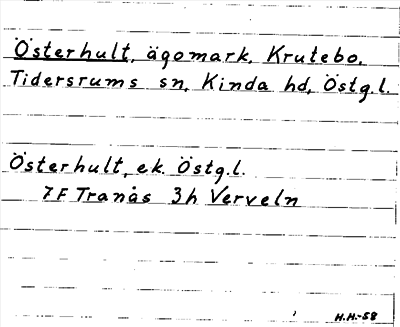 Österhult, ägomark, Krutebo,
Tidersrums sn, Kinda hd, Östg.l.
Österhult, ek. Östg.l.
7F Tranås 3h Verveln
H.H.-58